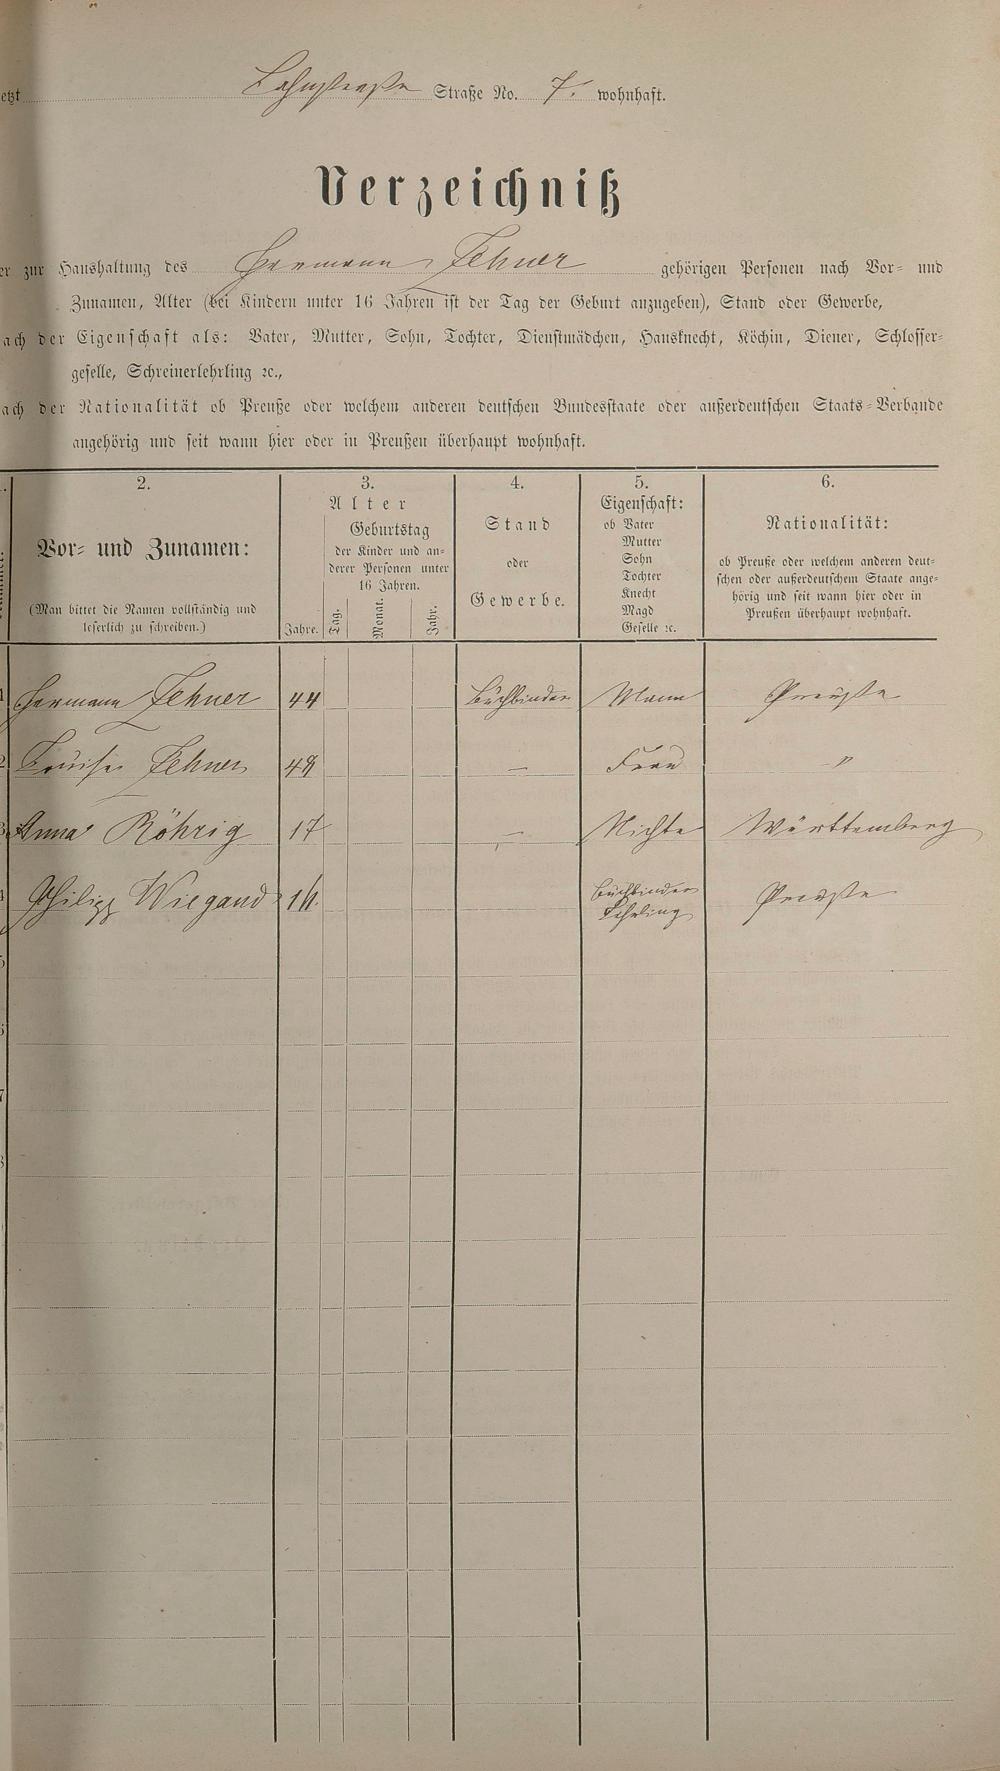 etzt Lahnstraße Straße No. 7. wohnhaft.
Verzeichniß
er zur Haushaltung des Hermann Zehner gehörigen Personen nach Vor- und
Zunamen, Alter (bei Kindern unter 16 Jahren ist der Tag der Geburt anzugeben), Stand oder Gewerbe,
ach der Eigenschaft als: Vater, Mutter, Sohn, Tochter, Dienstmädchen, Hausknecht, Köchin, Diener, Schlosser-
geselle, Schreinerlehrling ꝛc.,
ach der Nationalität ob Preuße oder welchem anderen deutschen Bundesstaate oder außerdeutschen Staats-Verbande
angehörig und seit wann hier oder in Preußen überhaupt wohnhaft.
2.
Vor- und Zunamen:
(Man bittet die Namen vollständig und
leserlich zu schreiben.)
3.
Alter
Geburtstag
der Kinder und an-
derer Personen unter
16 Jahren.
Jahre. Tag. Monat. Jahr.
4.
Stand
oder
Gewerbe.
5.
Eigenschaft:
ob Vater
Mutter
Sohn
Tochter
Knecht
Magd
Geselle ꝛc.
6.
Nationalität:
ob Preuße oder welchem anderen deut-
schen oder außerdeutschem Staate ange-
hörig und seit wann hier oder in
Preußen überhaupt wohnhaft.
1 Hermann Zehner 44 Buchbinder Mann Preuße
2 Louise Zehner 48 — Frau "
3 Anna Röhrig 17 — Nichte Württemberg
4 Philipp Wiegand 16 Buchbinder Lehrling Preuße
5
6
7
8